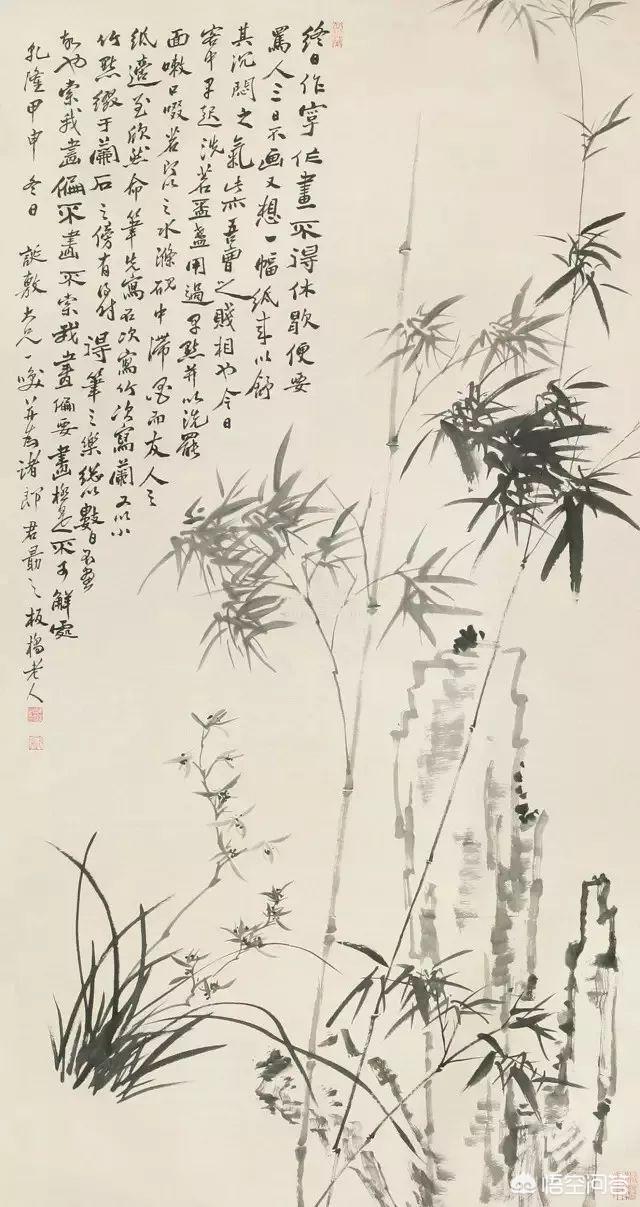 終日作字作畫不得休歇便要
罵人三日不画又想一幅紙來以舒
其沉悶之氣此亦吾曹之賤相也今日
客中早起洗茗盃盞用過早點并以洗罷
面嗽口啜茗以之水滌硯中滯墨而友人之
紙適至欣然命筆先寫石次寫竹次寫蘭又以小
竹點綴于蘭石之傍有得時得筆之樂総以數日不畫
故也索我畫偏不畫不索我畫偏要畫極是不可解處
乹隆甲申冬日 誕敷大兄一咲并為諸郎君勗之板橋老人
悟空问答